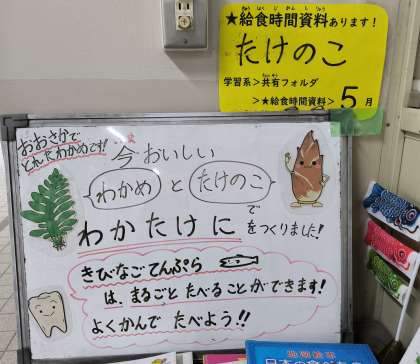 ★給食時間資料あります!
きゅうしょくじかんしりょう
たけのこ
学習系>共有フォルダ
きょうゆう
>★給食時間資料> 5月
おおさかで
とれたわかめです!!
今おいしい
わかめ と たけのこ で
わかたけに をつくりました!
きびなごてんぷら
は、まるごと たべる ことが できます!
よくかんで たべよう!!